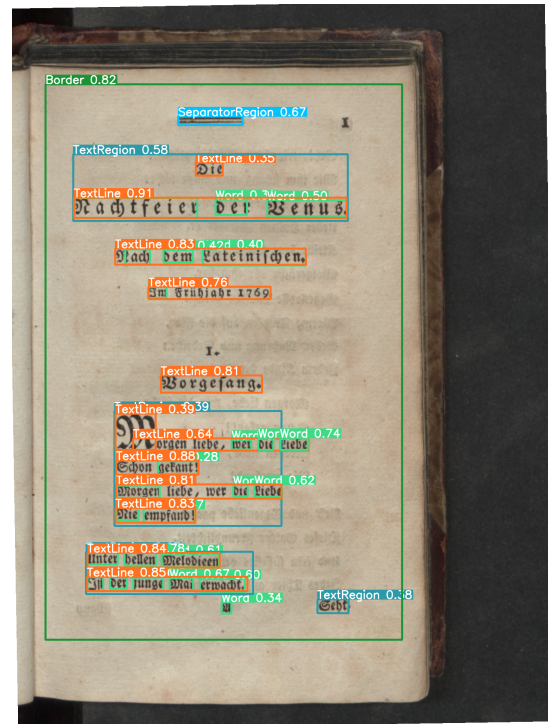 Border 0.82
SeparatorRegion 0.67
I
TextRegion 0.58
TextLine 0.35
Die
TextLine 0.91 Word 0.50
Nachtfeier der Venus.
TextLine 0.83 0.40
Nach dem Lateinischen.
TextLine 0.76
Im Frühjahr 1769
I.
TextLine 0.81
Vorgesang.
TextLine 0.39
TextLine 0.64 Word 0.74
Morgen liebe, wer die Liebe
TextLine 0.88
Schon gekant!
TextLine 0.81 Word 0.62
Morgen liebe, wer die Liebe
TextLine 0.83
Nie empfand!
TextLine 0.84
Unter hellen Melodieen
TextLine 0.85 Word 0.67
Ist der junge Mai erwacht.
Word 0.34 TextRegion 0.58
Seht